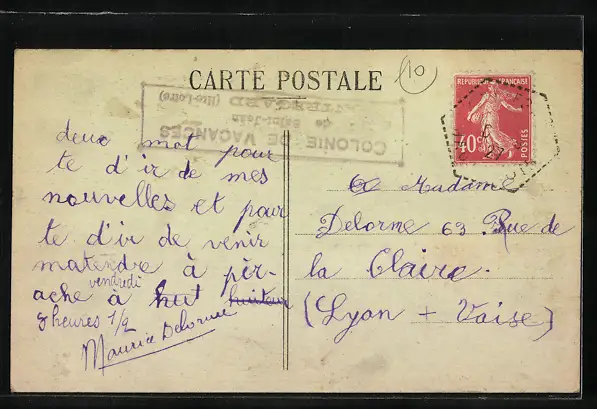 CARTE POSTALE
10
COLONIE DE VACANCES
de Saint-Jean
(Hte-Loire)
REPUBLIQUE FRANÇAISE
40c
POSTES
deux mot pour
te d'ir de mes
nouvelles et pour
te d'ir de venir
matendre à pèr-
ache à vendredi hut huiteur
8 heures 1/2
Maurice Delorme
a Madame
Delorme 63 Rue de
la Claire.
(Lyon + Vaise)